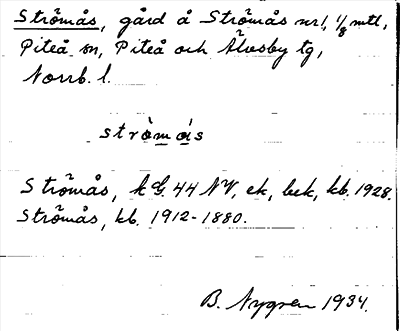 Strömås, gård å Strömås nr 1, 1/8 mtl,
Piteå sn, Piteå och Älvsby tg,
Norrb. l.
strömås
Strömås, kG. 44 NV, ek, bek, kb. 1928.
Strömås, kb. 1912-1880.
B. Nygren 1934.